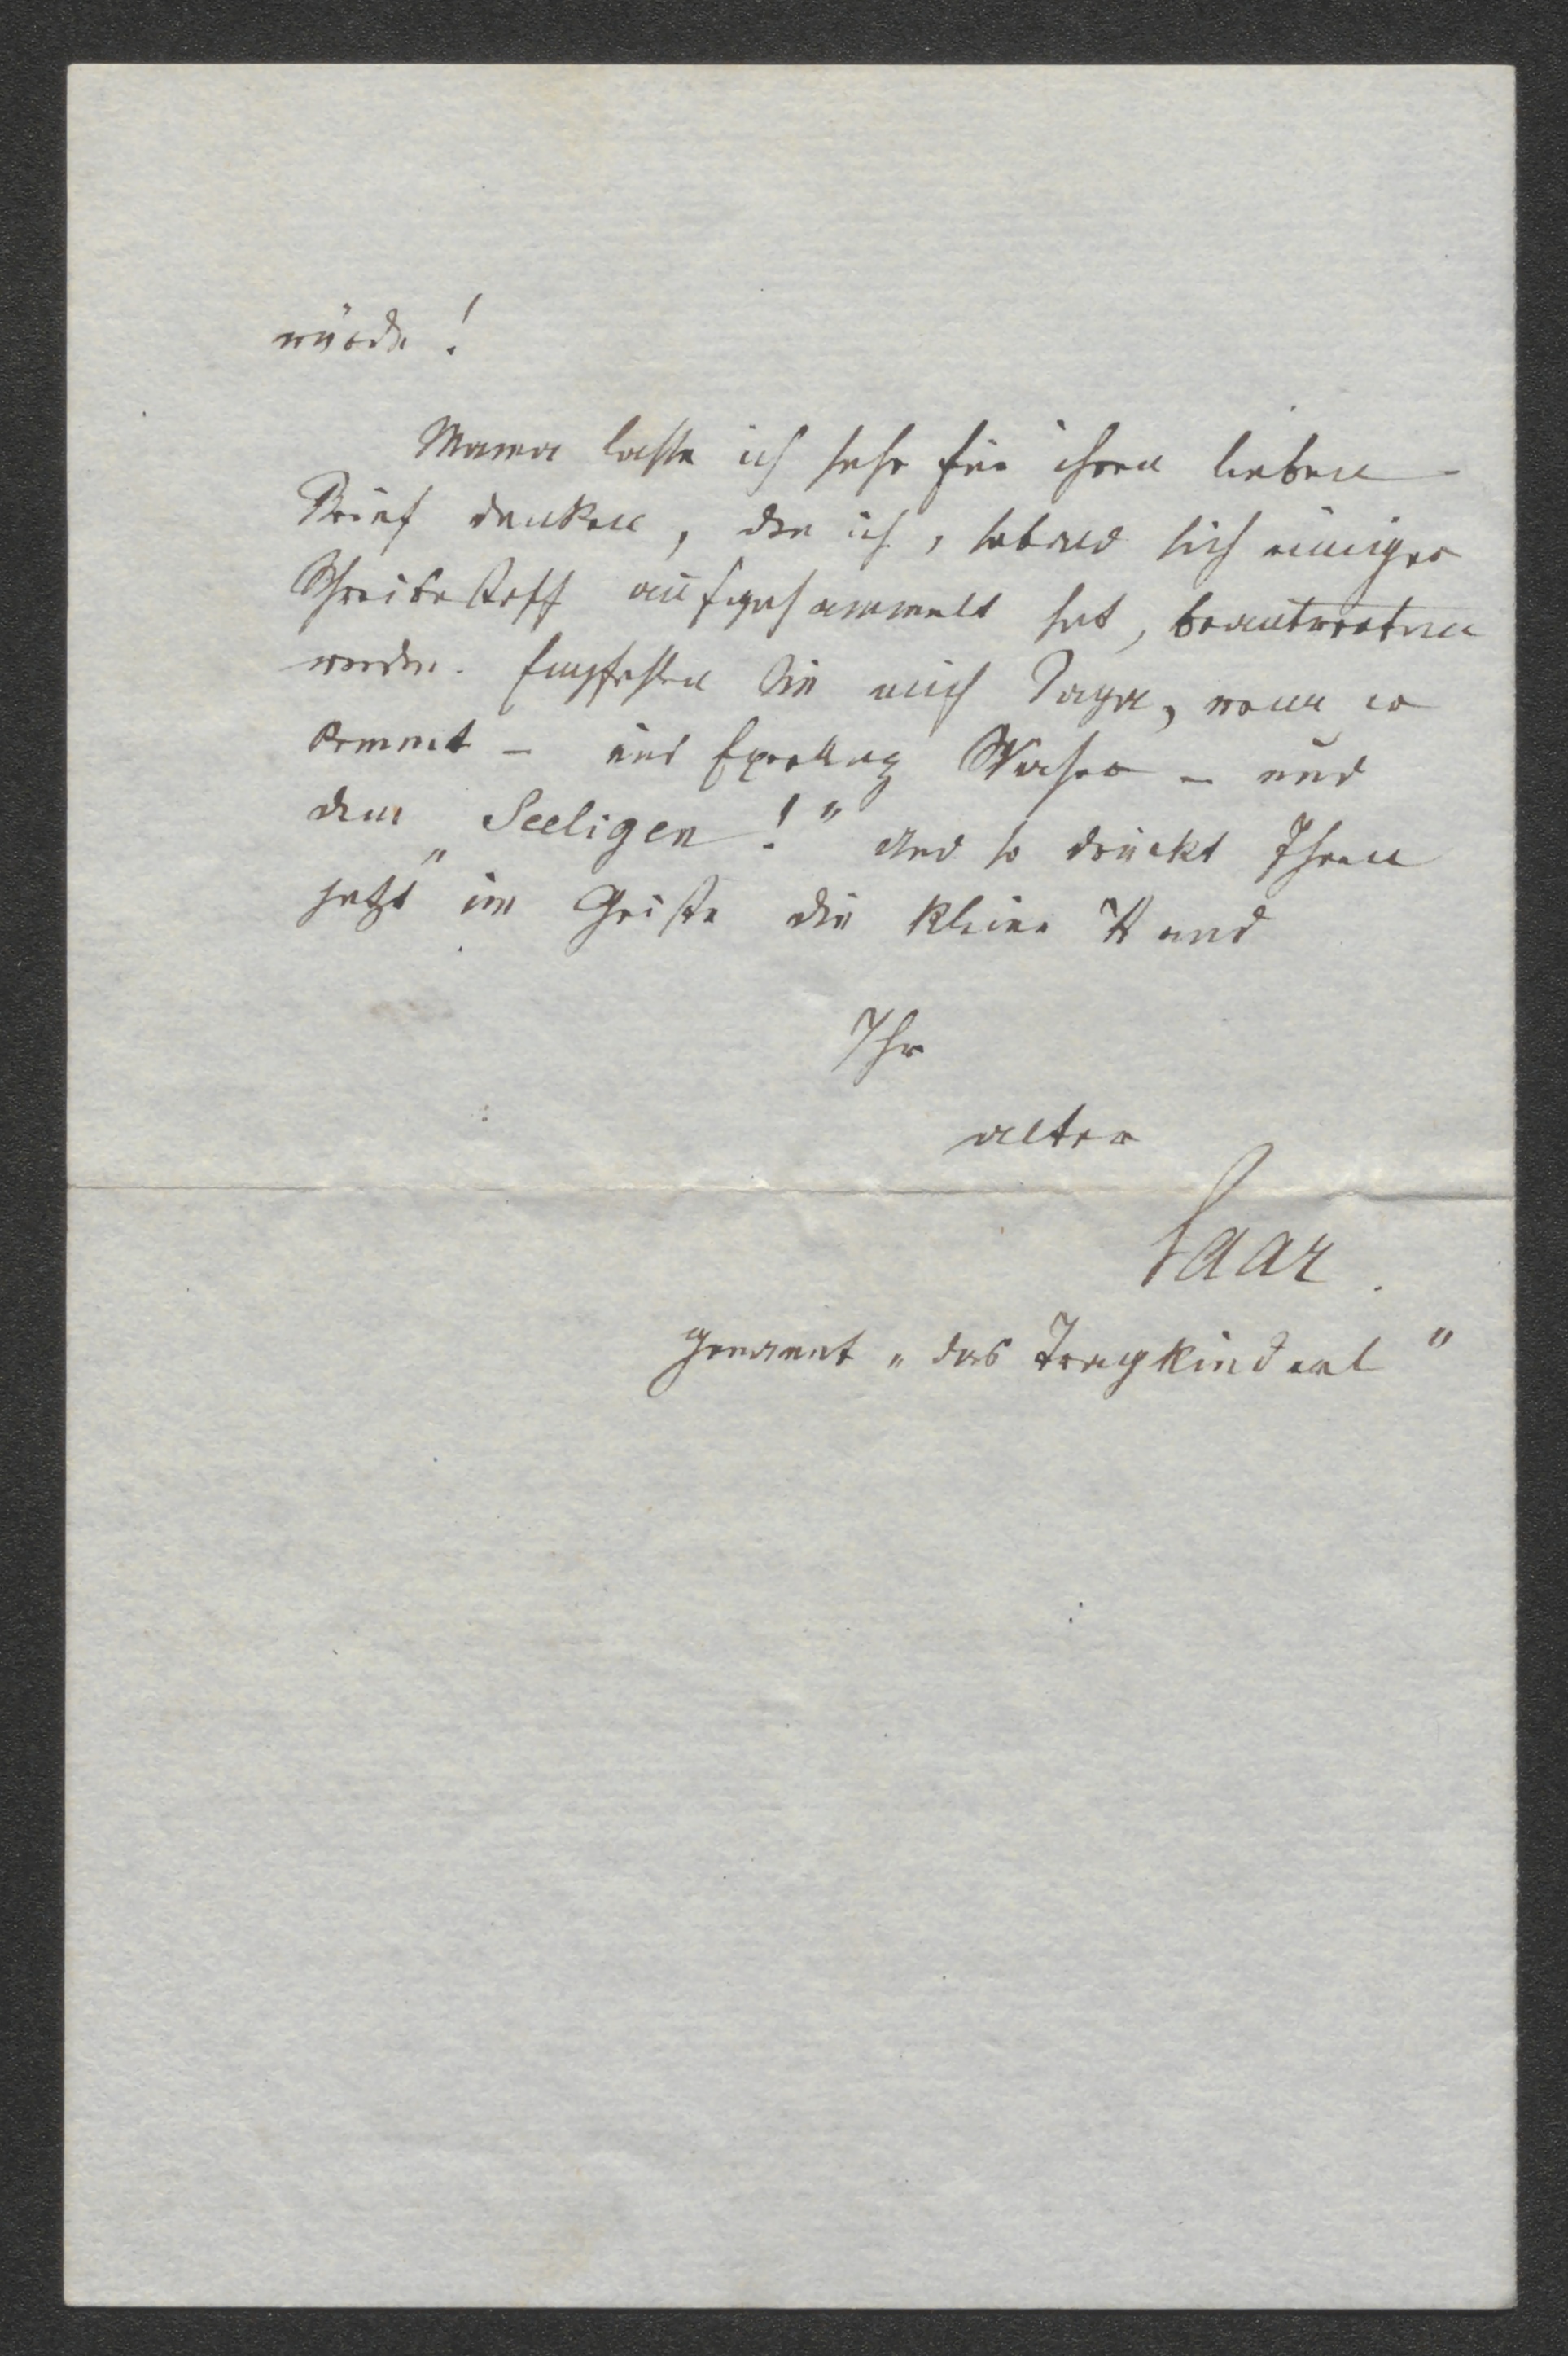 würde!
Mama lasse ich sehr für ihren lieben
Brief danken, den ich, sobald sich einiger
Schreibestoff aufgesammelt hat, beantworten
werde. Empfehlen Sie mich Papa, wenn er
kommt – und Excellenz Waser – und
dem „Seeligen!" Und so drückt Ihnen
jetzt im Geiste die kleine Hand
Ihr
alter
Saar.
genannt „das Tragkinderl"